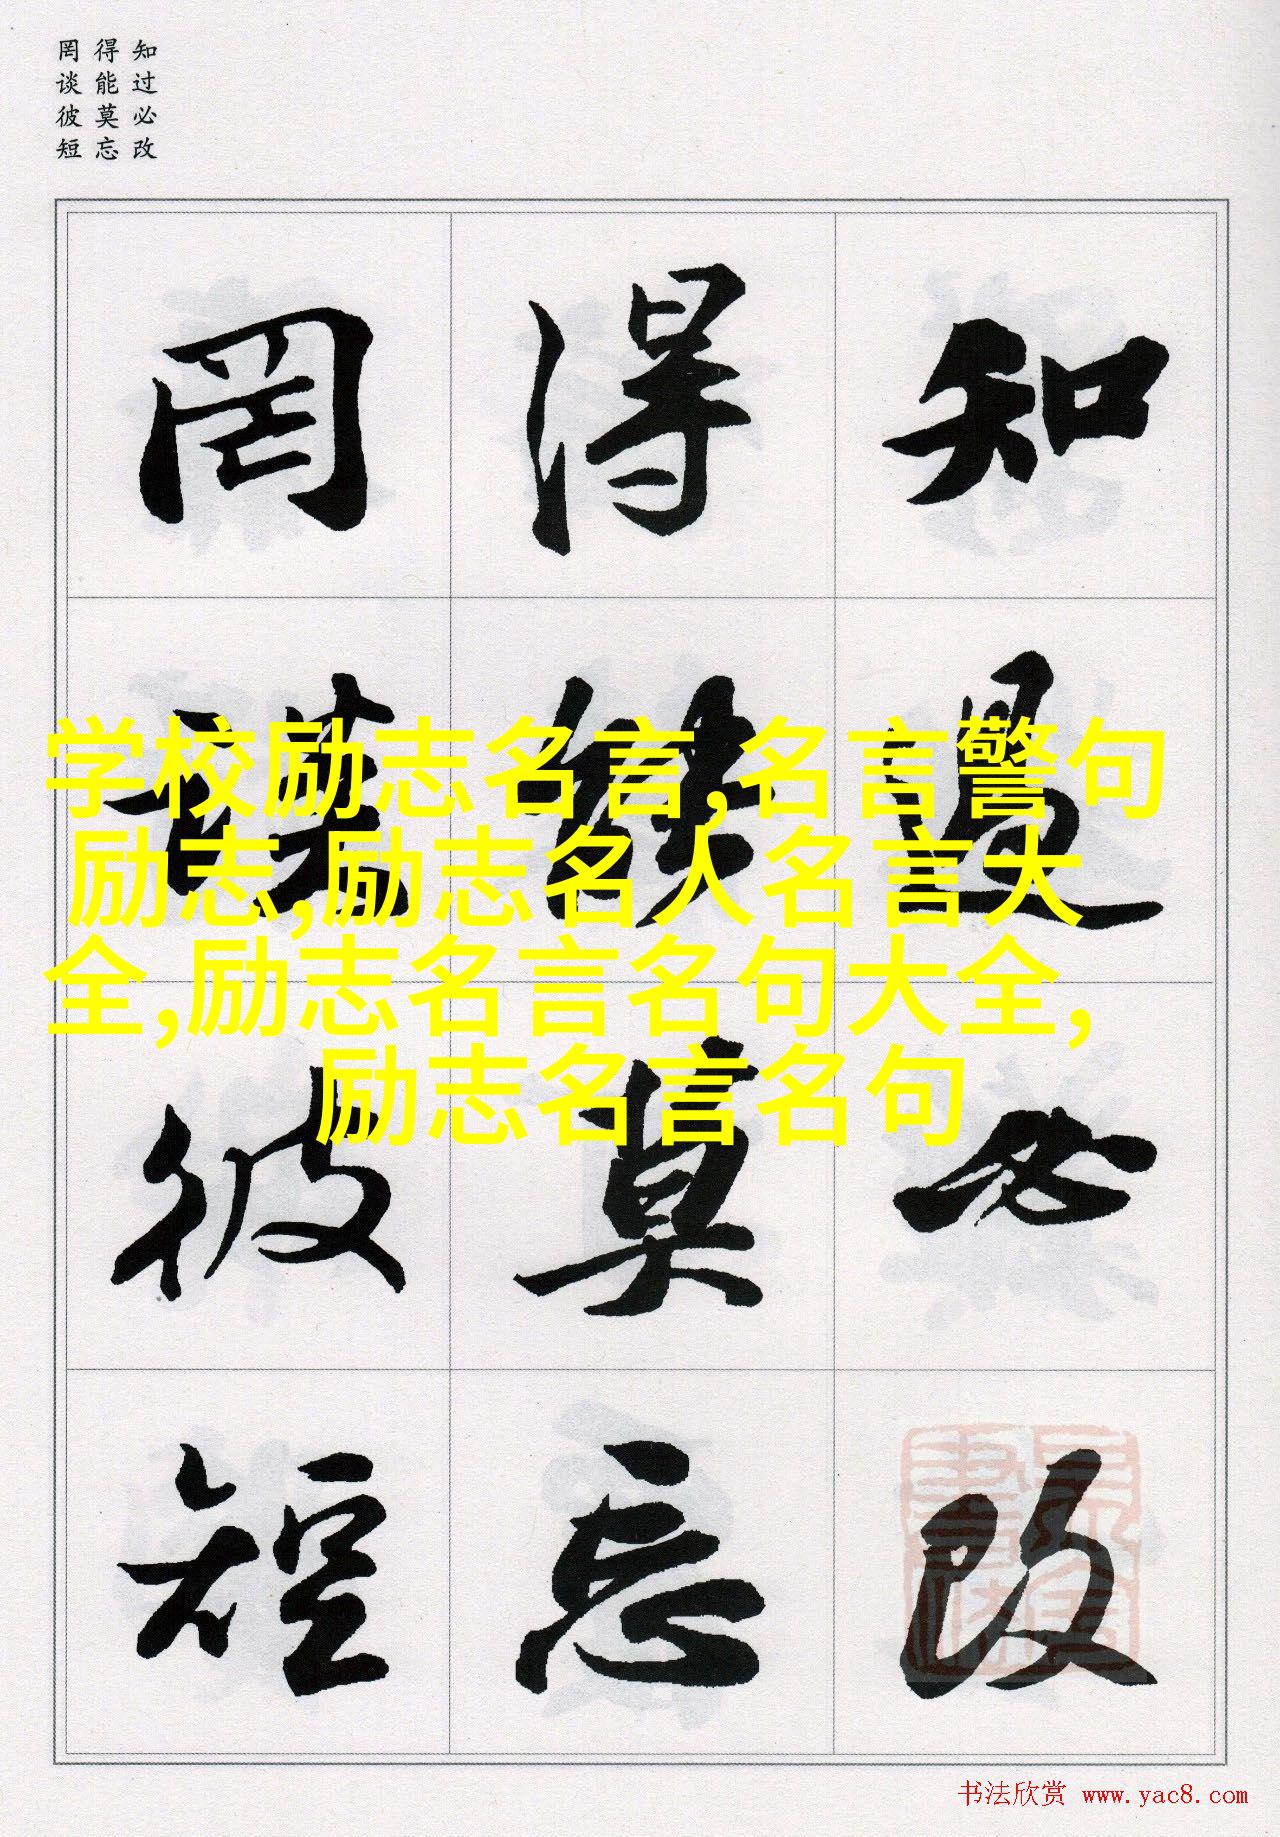 知过必改
得能莫忘
罔谈彼短
知過必改
得能莫忘
罔談彼短
学校励志名言,名言警句
励志,励志名人名言大
全,励志名言名句大全,
励志名言名句
书法欣赏 www.yac8.com